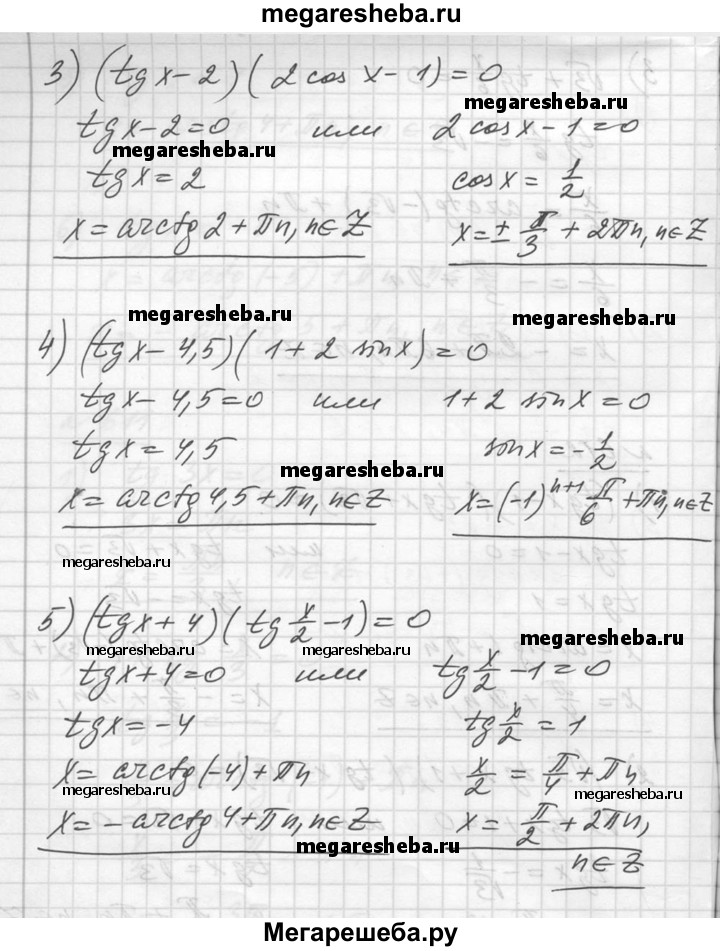 megaresheba.ru
3) (tg x - 2)(2 cos x - 1) = 0
megaresheba.ru
tg x - 2 = 0 или 2 cos x - 1 = 0
megaresheba.ru
tg x = 2 cos x = 1/2
x = arctg 2 + πn, n ∈ Z x = ± π/3 + 2πn, n ∈ Z
megaresheba.ru megaresheba.ru
4) (tg x - 4,5)(1 + 2 sin x) = 0
tg x - 4,5 = 0 или 1 + 2 sin x = 0
tg x = 4,5 sin x = - 1/2
megaresheba.ru
x = arctg 4,5 + πn, n ∈ Z x = (-1)^{n+1} π/6 + πn, n ∈ Z
megaresheba.ru
5) (tg x + 4)(tg x/2 - 1) = 0
megaresheba.ru megaresheba.ru megaresheba.ru
tg x + 4 = 0 или tg x/2 - 1 = 0
tg x = -4 tg x/2 = 1
x = arctg(-4) + πn x/2 = π/4 + πn
megaresheba.ru megaresheba.ru
x = - arctg 4 + πn, n ∈ Z x = π/2 + 2πn,
megaresheba.ru
n ∈ Z
Мегарешеба.ру